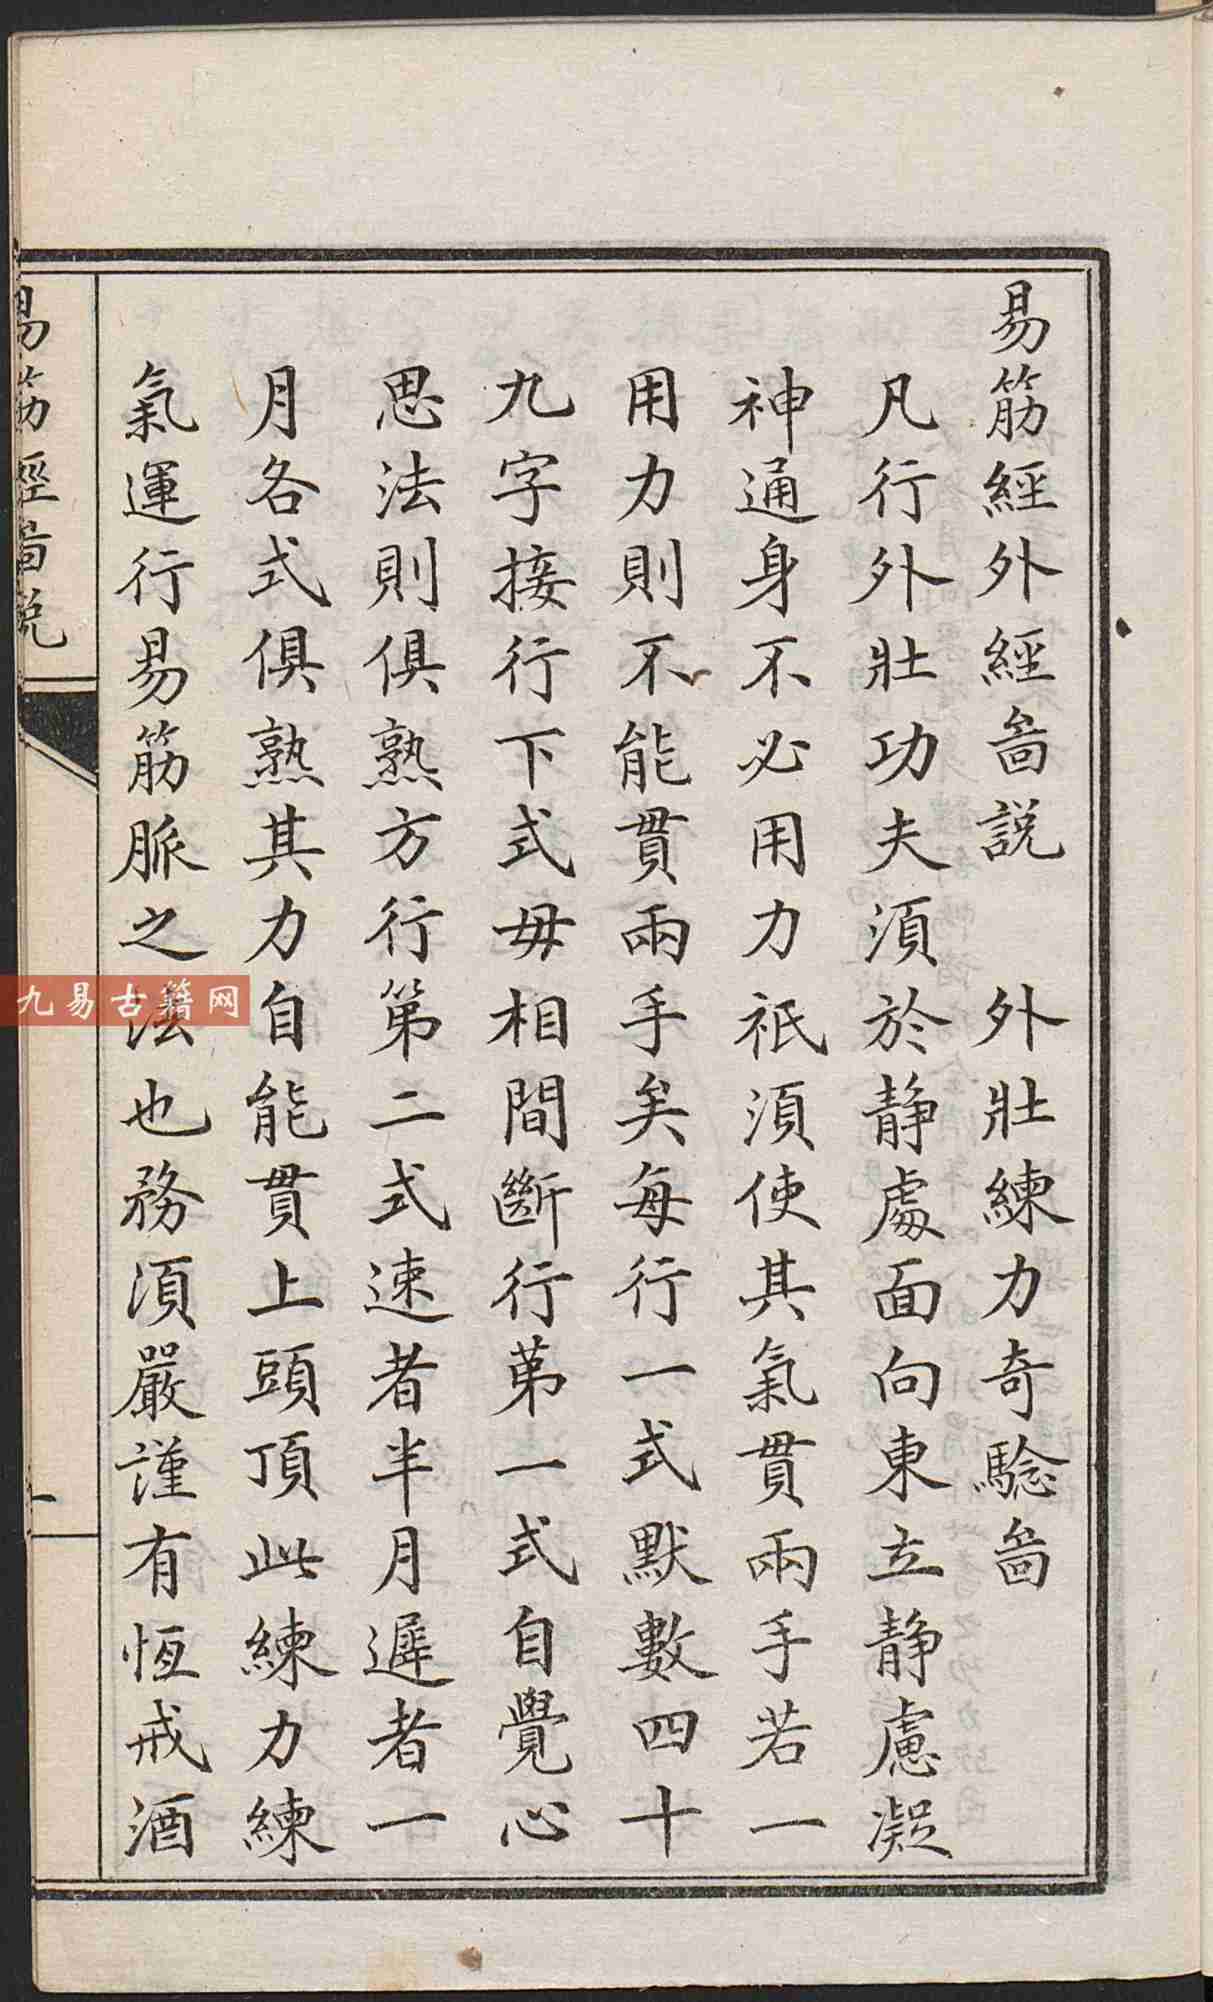 易筋經外經啚説　外壯練力奇驗啚
凡行外壯功夫須於静處面向東立静慮凝
神通身不必用力祇須使其氣貫兩手若一
用力則不能貫兩手矣每行一式默數四十
九字接行下式毋相間斷行第一式自覺心
思法則俱熟方行第二式速者半月遲者一
月各式俱熟其力自能貫上頭頂此練力練
氣運行易筋脈之法也務須嚴謹有恆戒酒
易筋經啚說
一
九易古籍网